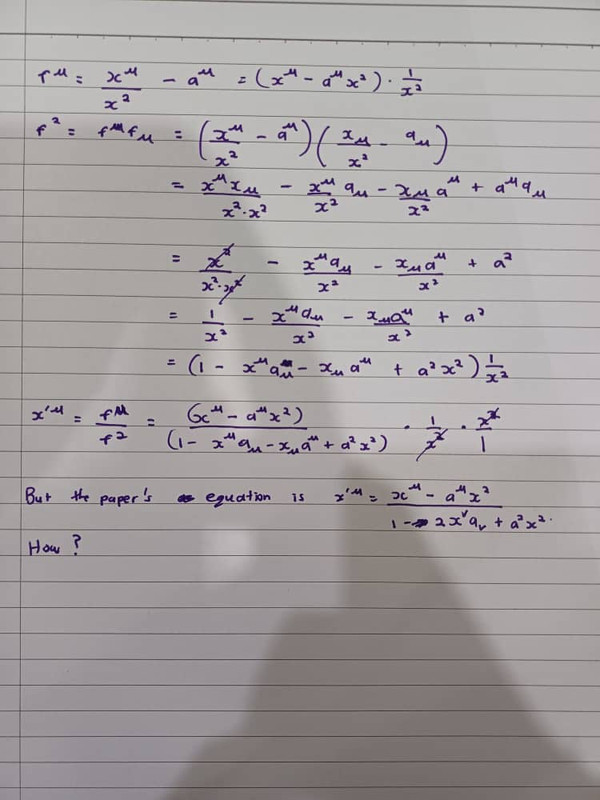 r^μ = x^μ/x² - a^μ = (x^μ - a^μ x²) · 1/x²
r² = r^μ r_μ = (x^μ/x² - a^μ)(x_μ/x² - a_μ)
= x^μ x_μ/x²·x² - x^μ a_μ/x² - x_μ a^μ/x² + a^μ a_μ
= x²/x²·x² - x^μ a_μ/x² - x_μ a^μ/x² + a²
= 1/x² - x^μ a_μ/x² - x_μ a^μ/x² + a²
= (1 - x^μ a_μ - x_μ a^μ + a² x²) 1/x²
x'^μ = r^μ/r² = (x^μ - a^μ x²)/(1 - x^μ a_μ - x_μ a^μ + a² x²) · 1/x² · x²/1
But the paper's equation is x'^μ = x^μ - a^μ x²/1 - 2x^ν a_ν + a² x².
How?